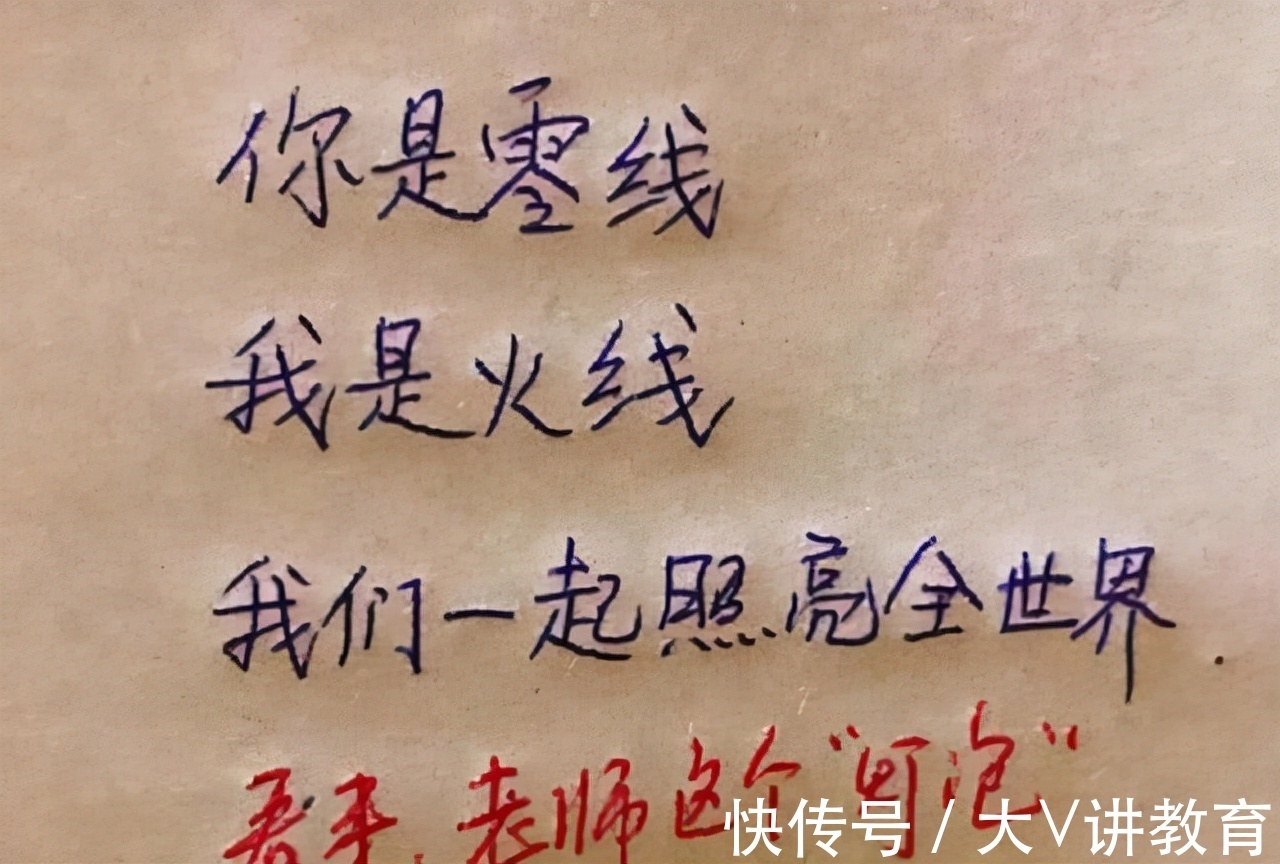 你是零线
我是火线
我们一起照亮全世界.
看来,老师这个“灯泡”
快传号 / 大V讲教育